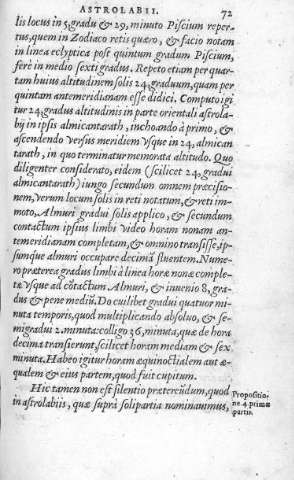 ASTROLABII. 72
lis locus in 5, gradu & 29, minuto Piscium reper-
tus, quem in Zodiaco retis quæro, & facio notam
in linea eclyptica post quintum gradum Piscium,
ferè in medio sexti gradus. Repeto etiam per quar-
tam huius altitudinem solis 24, graduum, quam per
quintam antemeridianam esse didici. Computo igi
tur 24, gradus altitudinis in parte orientali astrola-
bij in ipsis almicantarath, inchoando à primo, &
ascendendo versus meridiem vsque in 24, almican
tarath, in quo terminatur memorata altitudo. Quo
diligenter considerato, eidem (scilicet 24, gradui
almicantarath) iungo secundum omnem præcisio-
nem, verum locum solis in reti notatum, & reti im-
moto, Almuri gradui solis applico, & secundum
contactum ipsius limbi video horam nonam an-
temeridianam completam, & omnino transisse, ip-
sumque almuri occupare decimã fluentem. Nume-
ro præterea gradus limbi à linea horæ nonæ comple-
tæ vsque ad cõtactum Almuri, & inuenio 8, gra-
dus & pene mediũ. Do cuilibet gradui quatuor mi-
nuta temporis, quod multiplicando absoluo, & se-
migradui 2. minuta: colligo 36, minuta, quæ de hora
decima transierunt, scilicet horam mediam & sex
minuta. Habeo igitur horam æquinoctialem aut æ-
qualem & eius partem, quod fuit cupitum.
Hic tamen non est silentio prætereũdum, quod
in astrolabiis, quæ suprà solipartia nominauimus,
Propositio-
ne 4 primæ
partis.